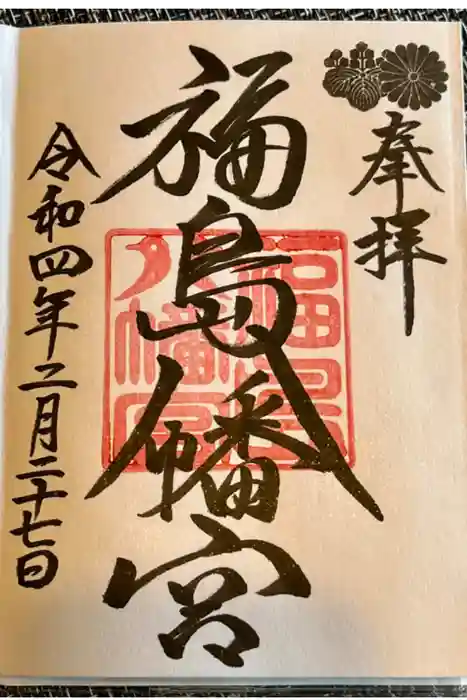 奉拝
福島八幡宮
福島
八幡宮
令和四年二月二十七日